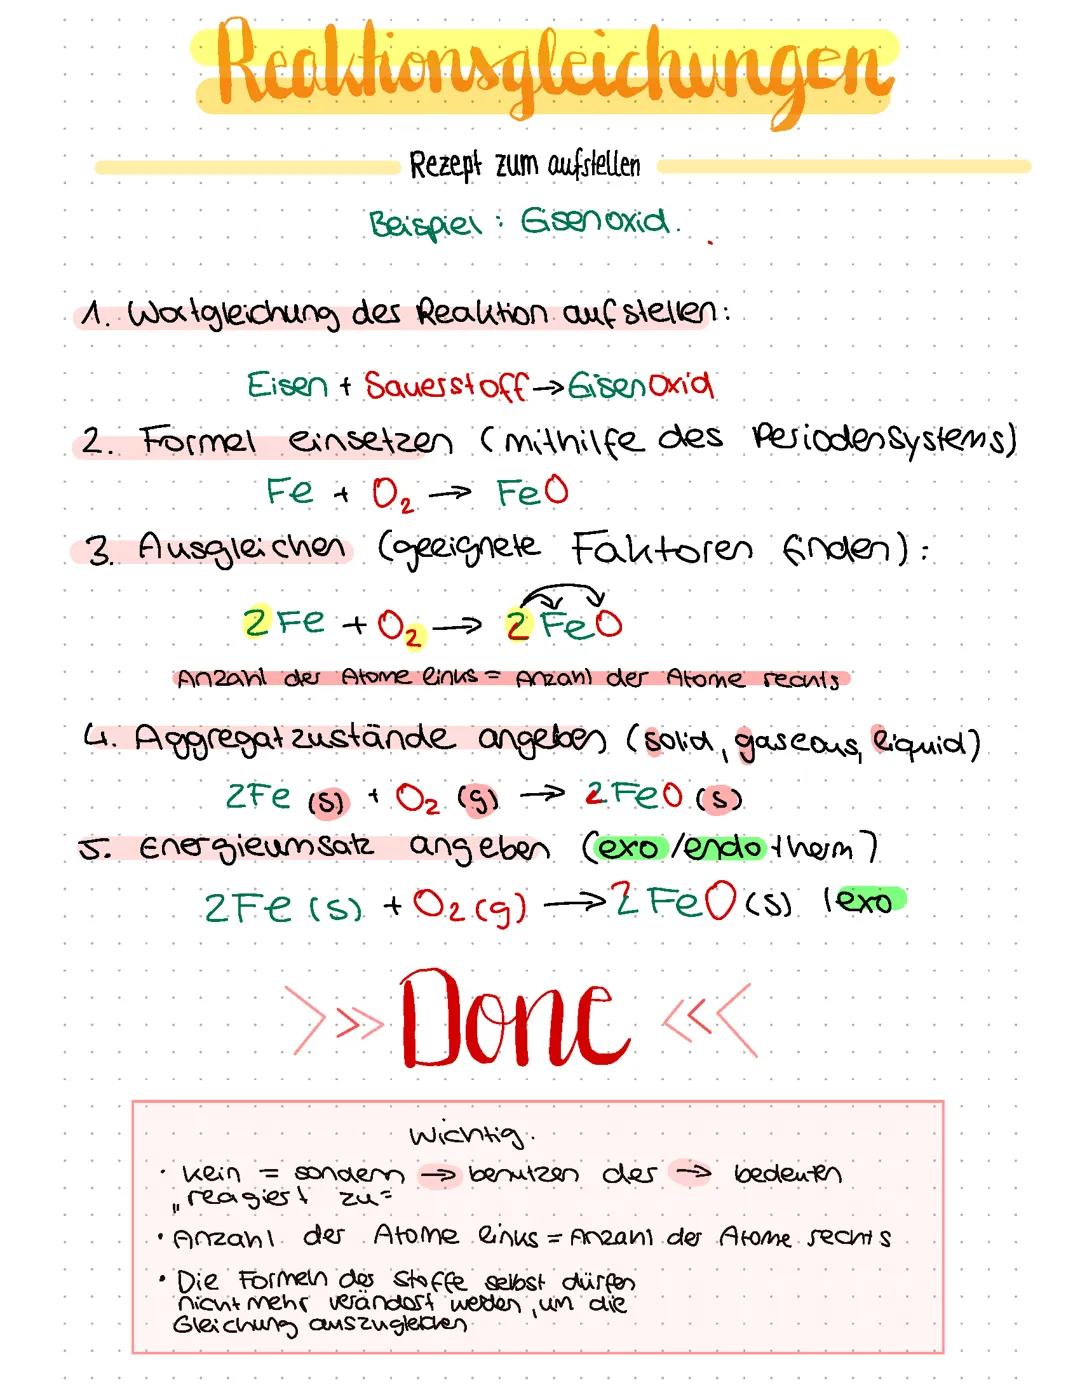 Reaktionsgleichungen
Rezept zum aufstellen
Beispiel : Eisenoxid.
1. Wortgleichung der Reaktion aufstellen:
Eisen + Sauerstoff → Eisenoxid
2. Formel einsetzen (mithilfe des Periodensystems)
Fe + O₂ → FeO
3. Ausgleichen (geeignete Faktoren finden):
2 Fe + O₂ → 2 FeO
Anzahl der Atome links = Anzahl der Atome rechts
4. Aggregatzustände angeben (solid, gaseous, liquid)
2Fe (s) + O₂ (g) → 2 FeO (s)
5. Energieumsatz angeben (exo/endotherm)
2Fe (s) + O₂ (g) → 2 FeO (s) | exo
>>> Done <<<
Wichtig.
· kein = sondern → benutzen der → bedeuten
„reagiert zu"
· Anzahl der Atome links = Anzahl der Atome rechts
· Die Formeln der Stoffe selbst dürfen
nicht mehr verändert werden, um die
Gleichung auszugleichen